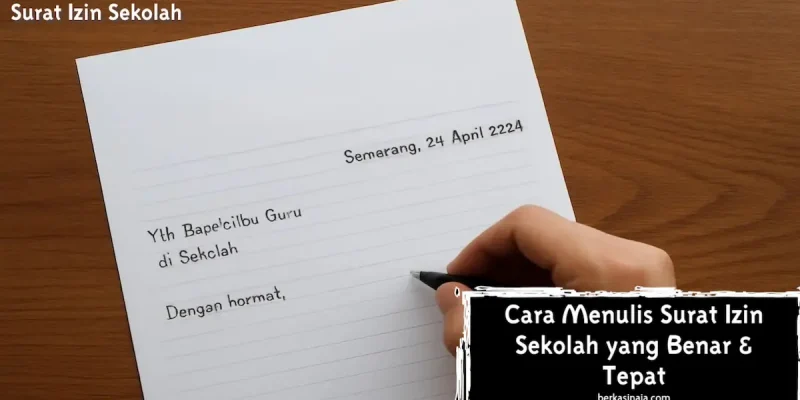 Surat Izin Sekolah
Semerang, 24 April 2224
Yth Bape'cilbu Guru
di Sekclah
Dengan hormat,
Cara Menulis Surat Izin
Sekolah yang Benar &
Tepat
berkasinaja.com